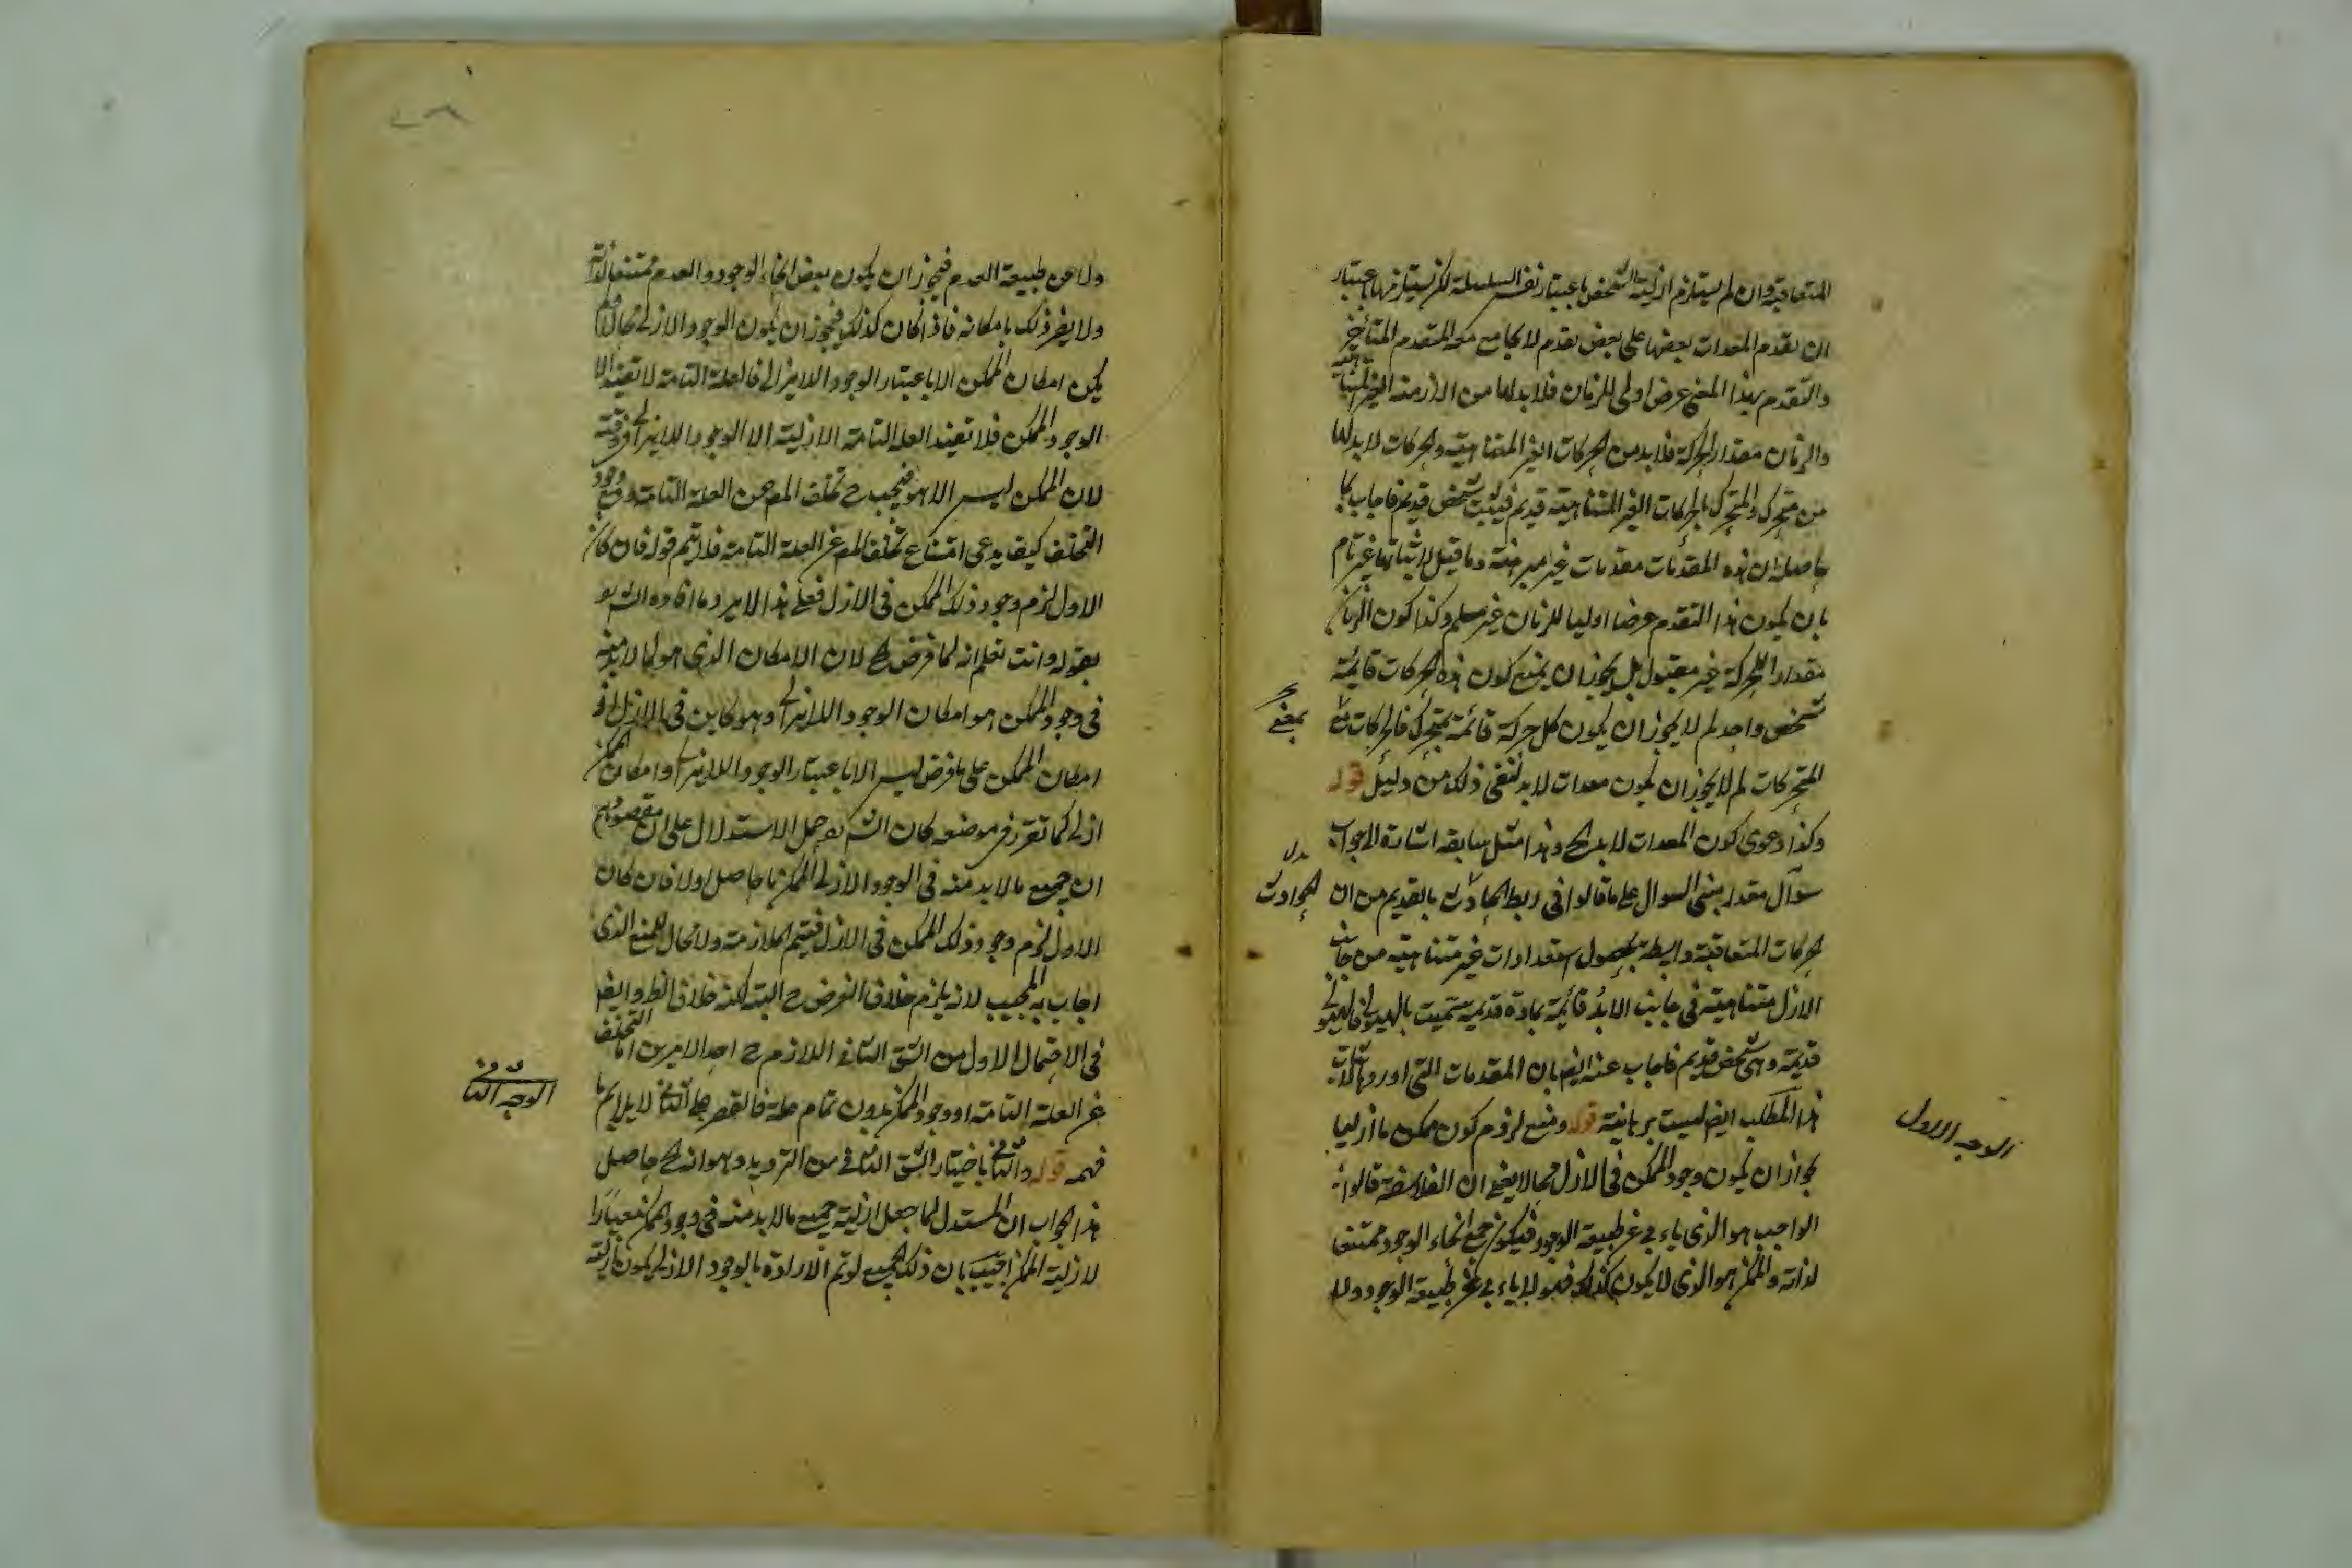 المتعاقبة وان لم يستلزم ازلية الشخص باعتبار نفس السلسلة لكن يستلزمها باعتبار
ان تقدم المعدات بعضها على بعض تقدم لا يجامع معه المتقدم المتأخر
والتقدم بهذا المعنى عرض اولى للزمان فلا بد لها من الازمنة الغير المتناهية
والزمان مقدار الحركة فلا بد من الحركات الغير المتناهية والحركات لا بد لها
من متحرك والمتحرك بالحركات الغير المتناهية قديم فيثبت شخص قديم فاجاب بما
حاصله ان هذه المقدمات مقدمات غير مبرهنة وما قيل لاثباتها غير تام
بان يكون هذا التقدم عرضا اوليا للزمان غير مسلم وكذا كون الزمان
مقدارا للحركة غير مقبول بل يجوز ان يمنع كون هذه الحركات قائمة
بشخص واحد لم لا يجوز ان يكون كل حركة قائمة بمتحرك فالحركات
المتحركات لم لا يجوز ان يكون معدات لا بد لنفى ذلك من دليل قوله
وكذا دعوى كون المعدات لا بد الخ وهذا مثل سابقه اشارة الى جواب
سوآل مقدر مبنى السوال على ما قالوا فى ربط الحادث بالقديم من ان
الحركات المتعاقبة واسطة بحصول استعدادات غير متناهية من جانب
الازل متناهية فى جانب الابد قائمة بمادة قديمة سميت بالهيولى فالهيولى
قديمة وهى شخص قديم فاجاب عنه ايضا بان المقدمات التى اوردها لاثبات
هذا المطلب ايضا ليست برهانية قوله ومنع لزوم كون ممكن ما ازليا
لجواز ان يكون وجود الممكن فى الازل محالا يعنى ان الفلاسفة قالوا
الواجب هو الذى ياءبى عن طبيعة الوجود فيكون جميع انحاء الوجود ممتنعا
لذاته والممكن هو الذى لا يكون كذلك فهو لا ياءبى عن طبيعة الوجود ولا
بمعنى
بدل
الحوادث
الوجه الاول
ولا عن طبيعة العدم فيجوز ان يكون بعض انحاء الوجود والعدم ممتنعا لذاته
ولا يضر ذلك بامكانه فاذا كان كذلك فيجوز ان يكون الوجود الازلى محالا
يكن امكان الممكن الا باعتبار الوجود اللايزالى فالعلة التامة لا تفيد الا
الوجود الممكن فلا تفيد العلة التامة الازلية الا الوجود اللايزالى فى وقته
لان الممكن ليس الا هو فيجب ح تخلف المعـ عن العلة التامة
التخلف كيف يدعى امتناع تخلف المعـ عن العلة التامة فلا يتم قوله فان كان
الاول لزم وجود ذلك الممكن فى الازل فعلى هذا الايراد ما افاده الش
بقوله وانت تعلم انه لما فرض الخ لان الامكان الذى هو مما لا بد منه
فى وجود الممكن هو امكان الوجود اللايزالى وهو كاين فى الازل اذ
امكان الممكن على ما فرض ليس الا باعتبار الوجود اللايزالى وامكان الممكن
ازلى كما تقرر فى موضعه كان الش حمل الاستدلال على ان مقصودهم
ان جميع ما لا بد منه فى الوجود الازلى الممكن ما حاصل اولا فان كان
الاول لزم وجود ذلك الممكن فى الازل فيتم الملازمة ولا مجال للمنع الذى
اجاب به المجيب لانه يلزم خلاف الفرض ح البتة لكنه خلاف الظـ وايضا
فى الاحتمال الاول من الشق الثانى اللازم ح احد الامرين اما التخلف
عن العلة التامة او وجود الممكن بدون تمام علته فالقصر على الثانى لا يلايم
فهمه قوله والثانى باختيار الشق الثانى من الترديد وهو انه الخ حاصل
هذا الجواب ان المستدل لما جعل ازلية جميع ما لا بد منه فى وجود الممكن
لازلية الممكن اجيب بان ذلك الجميع لو تم الارادة بالوجود الازلى يكون ازليته
الوجه الثانى